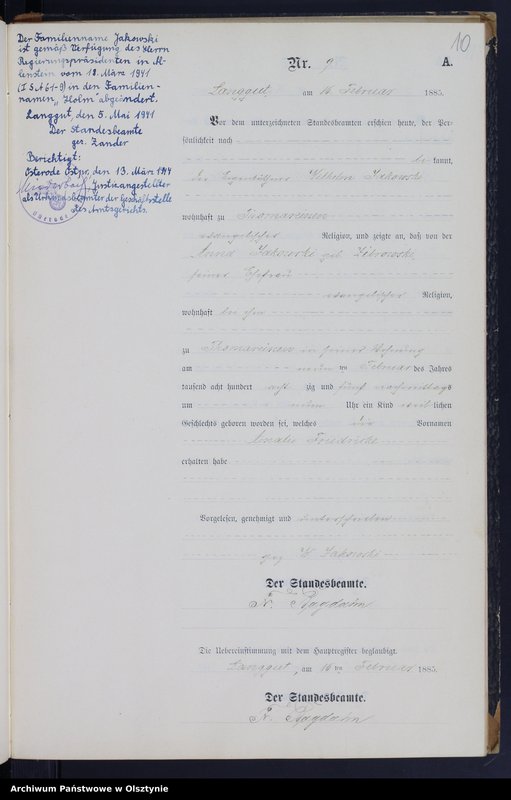 Der Familienname Jakowski
ist gemäß Verfügung des Herrn
Regierungspräsidenten in Al-
lenstein vom 18. März 1941
(I S A 61-9) in den Familien-
namen „Holm" abgeändert.
Langgut, den 5. Mai 1941
Der Standesbeamte
gez. Zander
Berichtigt:
Osterode Ostpr, den 13. März 1944
Justizangestellter
als Urkundsbeamter der Geschäftsstelle
des Amtsgerichts.
10
Nr. 9
A.
Langgut am 16 Februar 1885.
Vor dem unterzeichneten Standesbeamten erschien heute, der Per-
sönlichkeit nach
be kannt,
der Wilhelm Jakowski
wohnhaft zu Thomareinen
evangelischer Religion, und zeigte an, daß von der
Anna Jakowski geb.
seiner Ehefrau
evangelischer Religion,
wohnhaft bei ihm
zu Thomareinen in seiner Wohnung
am neun ten Februar des Jahres
tausend acht hundert acht zig und fünf nachmittags
um neun Uhr ein Kind weib lichen
Geschlechts geboren worden sei, welches die Vornamen
Amalie Friedricke
erhalten habe
Vorgelesen, genehmigt und unterschrieben
gez W. Jakowski
Der Standesbeamte.
Die Uebereinstimmung mit dem Hauptregister beglaubigt.
Langgut, am 16 ten Februar 1885.
Der Standesbeamte.
Archiwum Państwowe w Olsztynie